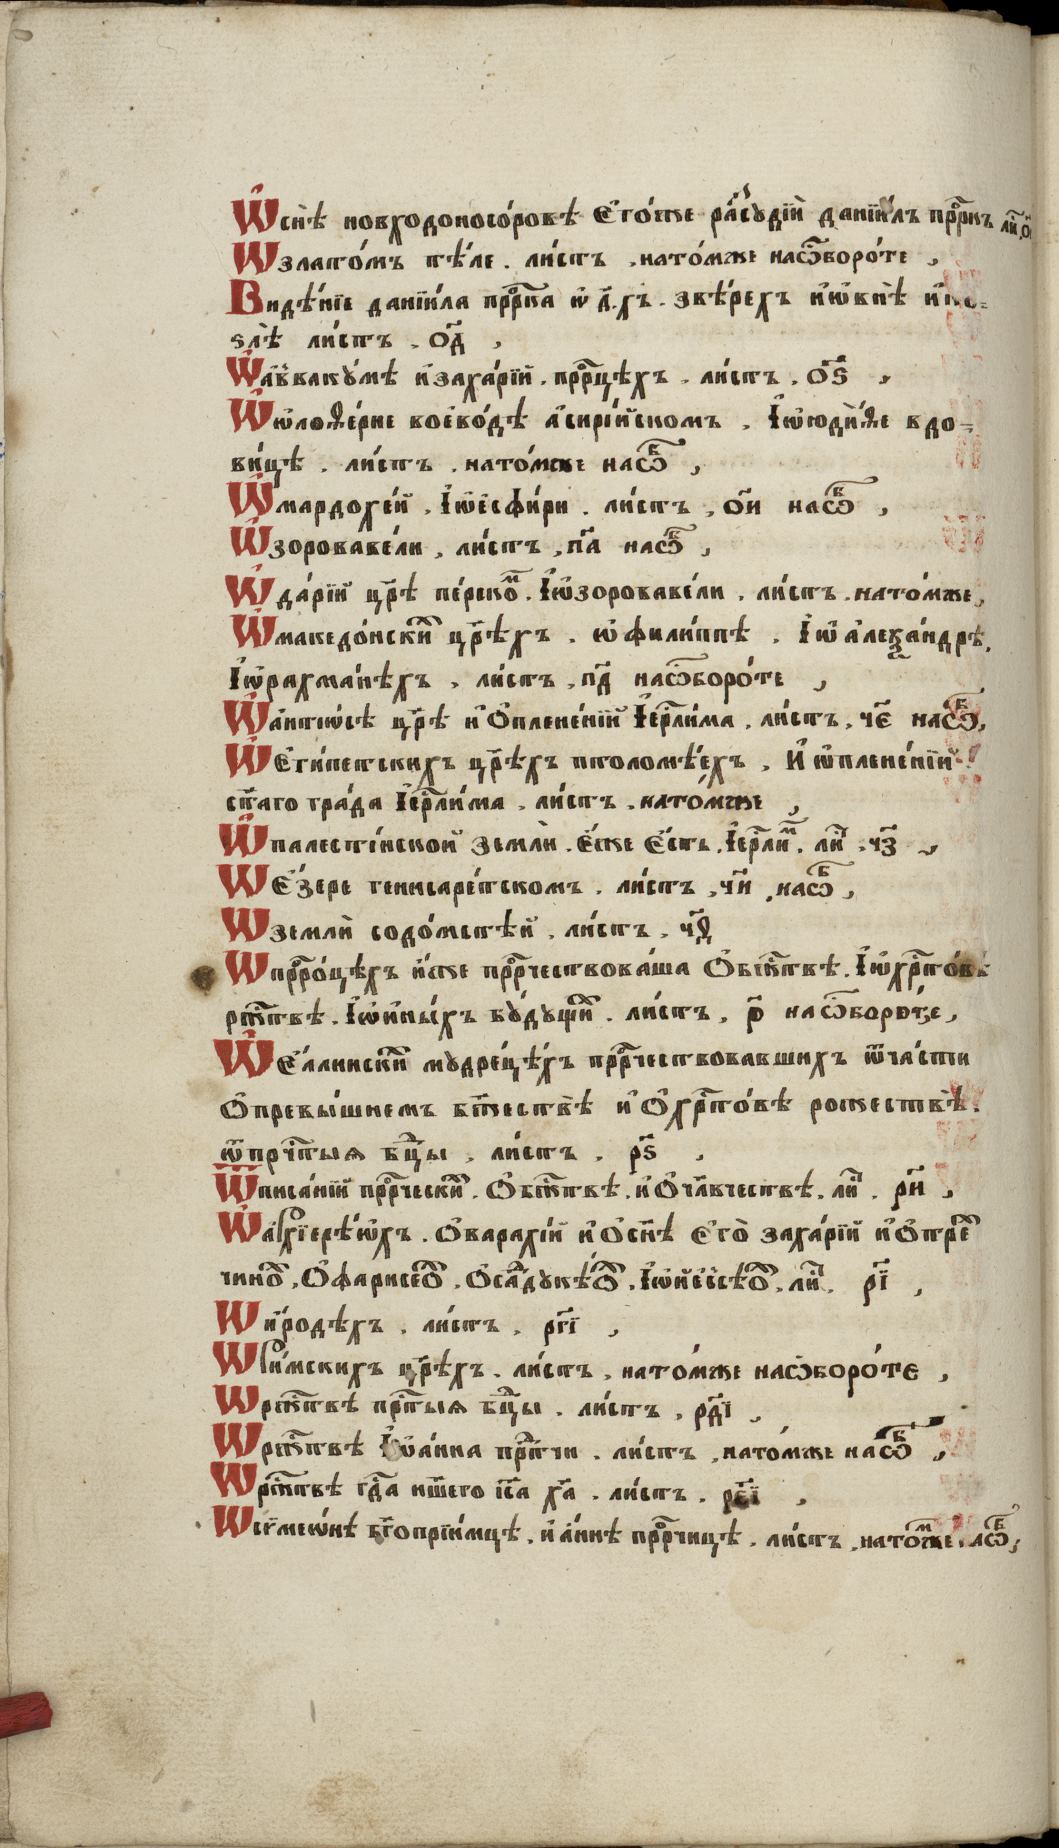 Ѡ҆ снѣ̀ новходоносо́ровѣ Є҆го́же ра́зсꙋдїй данїи́лъ прⷪ҇ркъ ли́
Ѡ҆ злато́мъ тѣ́ле . ли́стъ , на то́мже на ѡ҆боро́те ,
Видѣ́нїе данїи́ла прⷪ҇рка ѡ҆ д҃.хъ . звѣ́рехъ и҆ ѡ҆ внѣ̀
ѕлѣ̀ ли́стъ . ѻ҃д ,
Ѡ҆ а҆ввакꙋ́мѣ и҆ заха́рїй . прⷪ҇рцѣхъ . ли́стъ . ѻ҃ѕ ,
Ѡ҆ ѡ҆лоѳе́рне воево́дѣ а҆сирі́йскомъ . І҆ ѡ҆ ю҆ди́ѳе вдо-
ви́цѣ . ли́стъ . на то́мже на ѡ҆б ,
Ѡ҆ мардохе́й , І҆ ѡ҆ є҆сѳи́ри . ли́стъ , ѻ҃и на ѡ҆б ,
Ѡ҆ зоровавє́ли , ли́стъ , п҃а на ѡ҆б ,
Ѡ҆ да́рїй цр҃ѣ пе́рскоⷨ . І҆ ѡ҆ зоровавє́ли . ли́стъ . на то́мже ,
Ѡ҆ македо́нскиⷯ цр҃ѣхъ . ѡ҆ фили́ппѣ . І҆ ѡ҆ а҆леѯа́ндрѣ ,
І҆ ѡ҆ рахма́нѣхъ , ли́стъ , п҃д на ѡ҆боро́те ,
Ѡ҆ а҆нтїѡ́сѣ цр҃ѣ и҆ Ѻ҆ пленє́нїй І҆ерⷭ҇ли́ма , ли́стъ , ч҃є на ѡ҆б ,
Ѡ҆ Є҆ги́петскихъ цр҃ѣхъ птоломѣ́ехъ , И҆ ѡ҆ пленє́нїй
ст҃аго гра́да І҆ерⷭ҇ли́ма , ли́стъ , на то́мже ,
Ѡ҆ палести́нской землѝ . Є҆́же Є҆́сть . І҆ерⷭ҇лиⷨ . лиⷭ҇ . ч҃з ,
Ѡ҆ Є҆́зере геннсаре́тскомъ . ли́стъ , ч҃и , на ѡ҆б ,
Ѡ҆ землѝ содо́мстѣй , ли́стъ , ч҃ѳ
Ѡ҆ прⷪ҇ро́цѣхъ и҆̀же прⷪ҇рчествова́ша Ѻ҆ бжⷭ҇твѣ . І҆ ѡ҆ хрⷭ҇то́вѣ
ржⷭ҇твѣ . І҆ ѡ҆ и҆ны́хъ бꙋ́дꙋщиⷯ . ли́стъ , р҃ на ѡ҆боро́те ,
Ѡ҆ Є҆́ллинскиⷯ мꙋдре́цѣхъ прⷪ҇рчествовавшихъ ѿ ча́сти
Ѻ҆ превы́шнемъ бж҃ествѣ̀ и҆ Ѻ҆ хрⷭ҇то́вѣ рожествѣ̀ .
ѿ прчⷭ҇тыѧ бцⷣы , ли́стъ . р҃ѕ ,
Ѿ писа́нїй прⷪ҇рческиⷯ . Ѻ҆ бжⷭ҇твѣ . и҆ Ѻ҆ чл҃вчествѣ . лиⷭ҇ . р҃и ,
Ѡ҆ а҆рхїерѣ́ѡхъ . Ѻ҆ варахі́й и҆ Ѻ҆ сн҃ѣ Є҆го̀ заха́рїй и҆ Ѻ҆ прⷣе
чиноⷯ . Ѻ҆ фарисеоⷯ . Ѻ҆ саⷣдꙋкѣоⷯ . І҆ ѡ҆ и҆є҆ссѣоⷯ . лиⷭ҇ . р҃і ,
Ѡ҆ и҆́родѣхъ . ли́стъ . р҃гі ,
Ѡ҆ ри́мскихъ цр҃ѣхъ . ли́стъ , на то́мже на ѡ҆боро́те ,
Ѡ҆ ржⷭ҇твѣ прⷭ҇тыѧ бцⷣы . ли́стъ , р҃ді ,
Ѡ҆ ржⷭ҇твѣ І҆ѡа́нна прⷣтчи . ли́стъ , на то́мже на ѡ҆б ,
Ѡ҆ ржⷭ҇твѣ гдⷭ҇а нш҃его іс҃а х҃а . ли́стъ . р҃єі ,
Ѡ҆ сѷмеѡ́нѣ бг҃опрїи́мцѣ . и҆ а҆́ннѣ прⷪ҇рчицѣ . ли́стъ , на то́мже на ѡ҆б ,